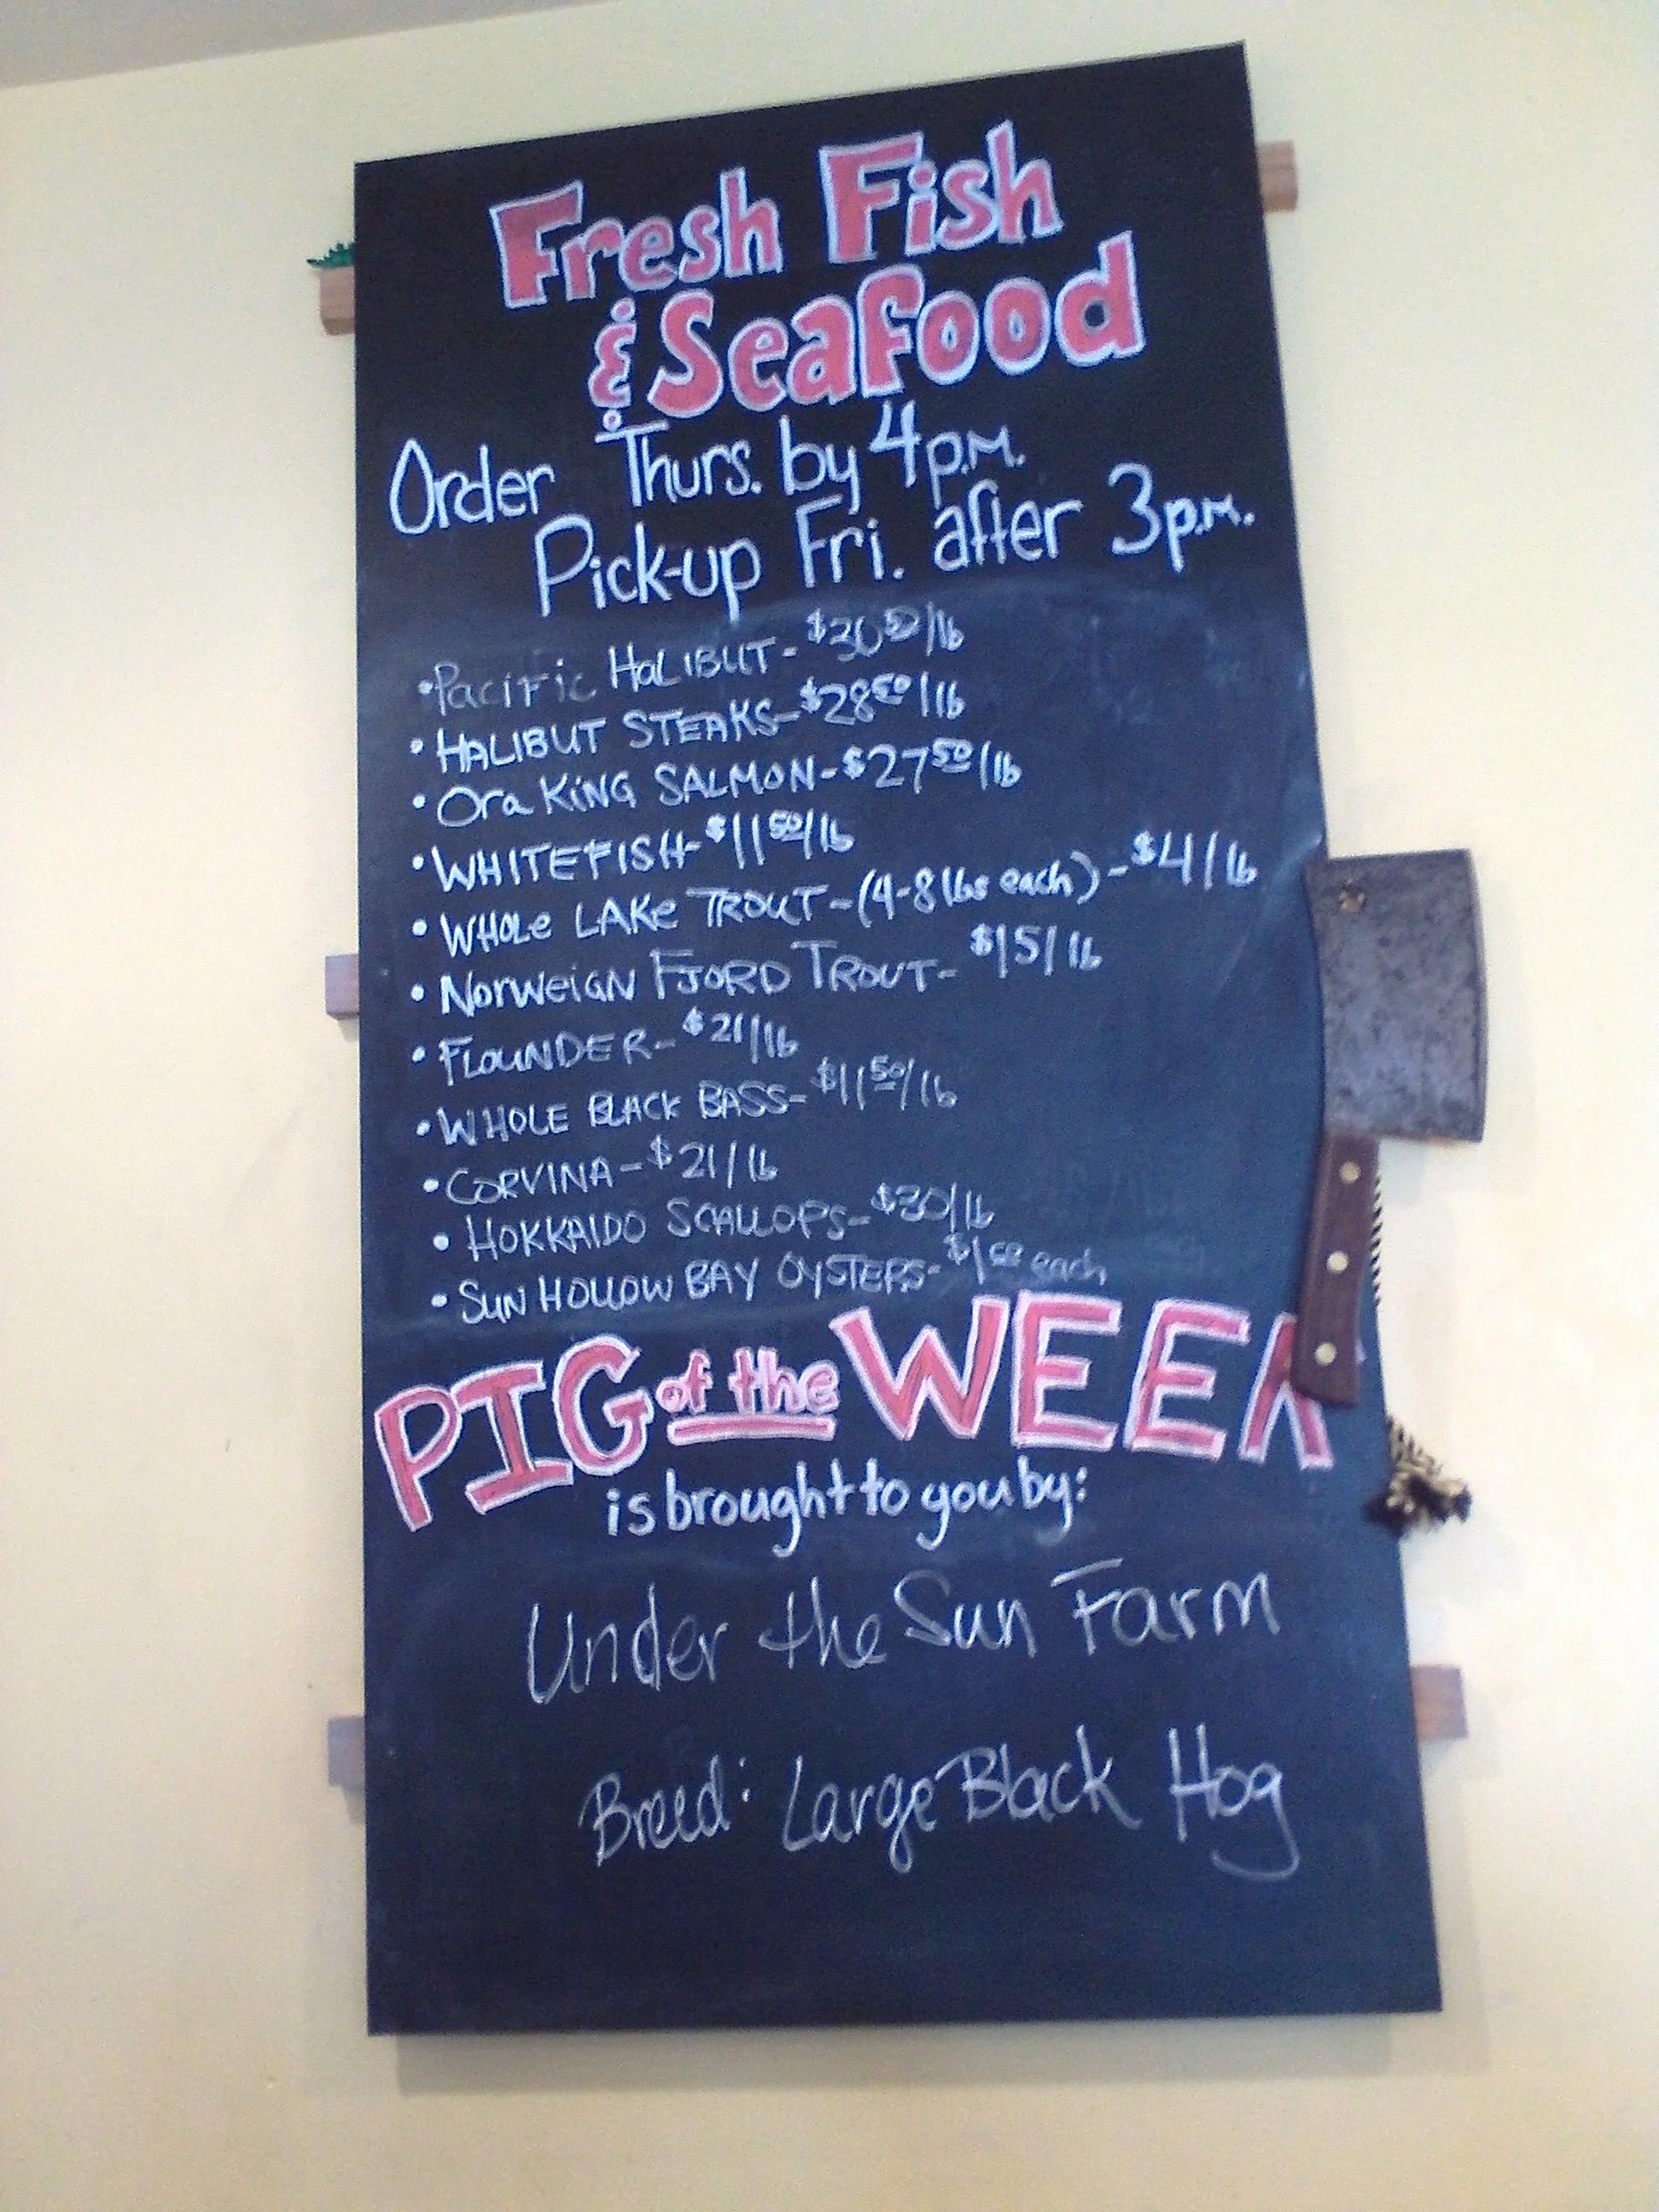 Fresh Fish
& Seafood
Order Thurs. by 4p.m.
Pick-up Fri. after 3p.m.
• Pacific HaLIBUT - $30 50/lb
• HALIBUT STEAKS - $28 50/lb
• Ora KiNG SALMON - $27 50/lb
• WHITEFISH - $11 50/lb
• WHOLe LAKe TROUT - (4-8 lbs each) - $4/lb
• NorweiGN FJORD TROUT - $15/lb
• FLOUNDER - $21/lb
• WHOLE BLACK BASS - $11 50/lb
• CORVINA - $21/lb
• HOKKAIDO SCALLOPS - $30/lb
• SUN HOLLOW BAY OYSTERS - each
PIG of the WEEK
is brought to you by:
Under the Sun Farm
Breed: Large Black Hog